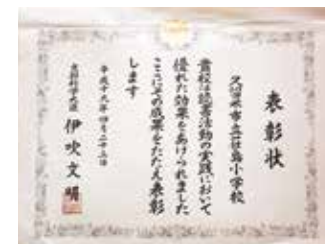 表彰状
久留米市立荘島小学校
貴校は読書活動の実践において
優れた効果をあげられました
ここにその成果をたたえ表彰
します
平成十九年四月二十三日
文部科学大臣 伊吹文明